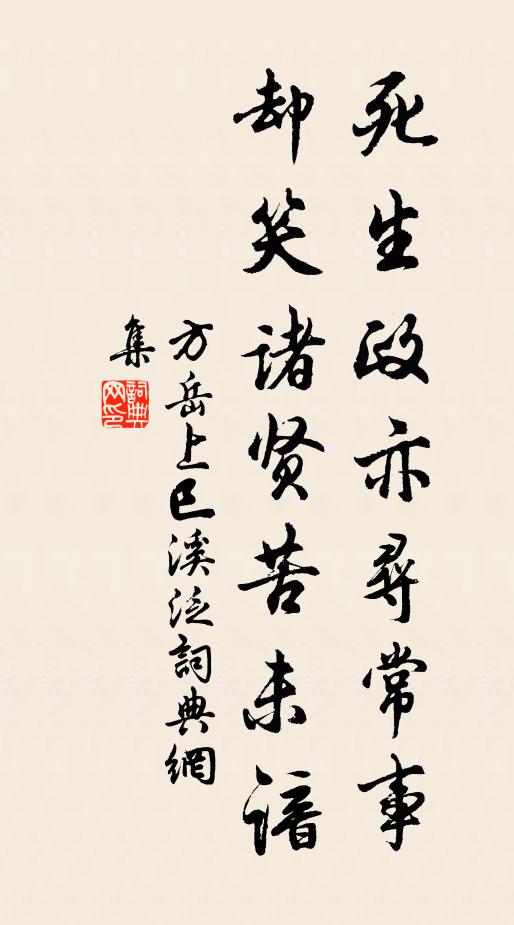 死生政亦尋常事
却笑诸贤苦未谙
方岳上巳溪泛詞典網
集
詞典网印